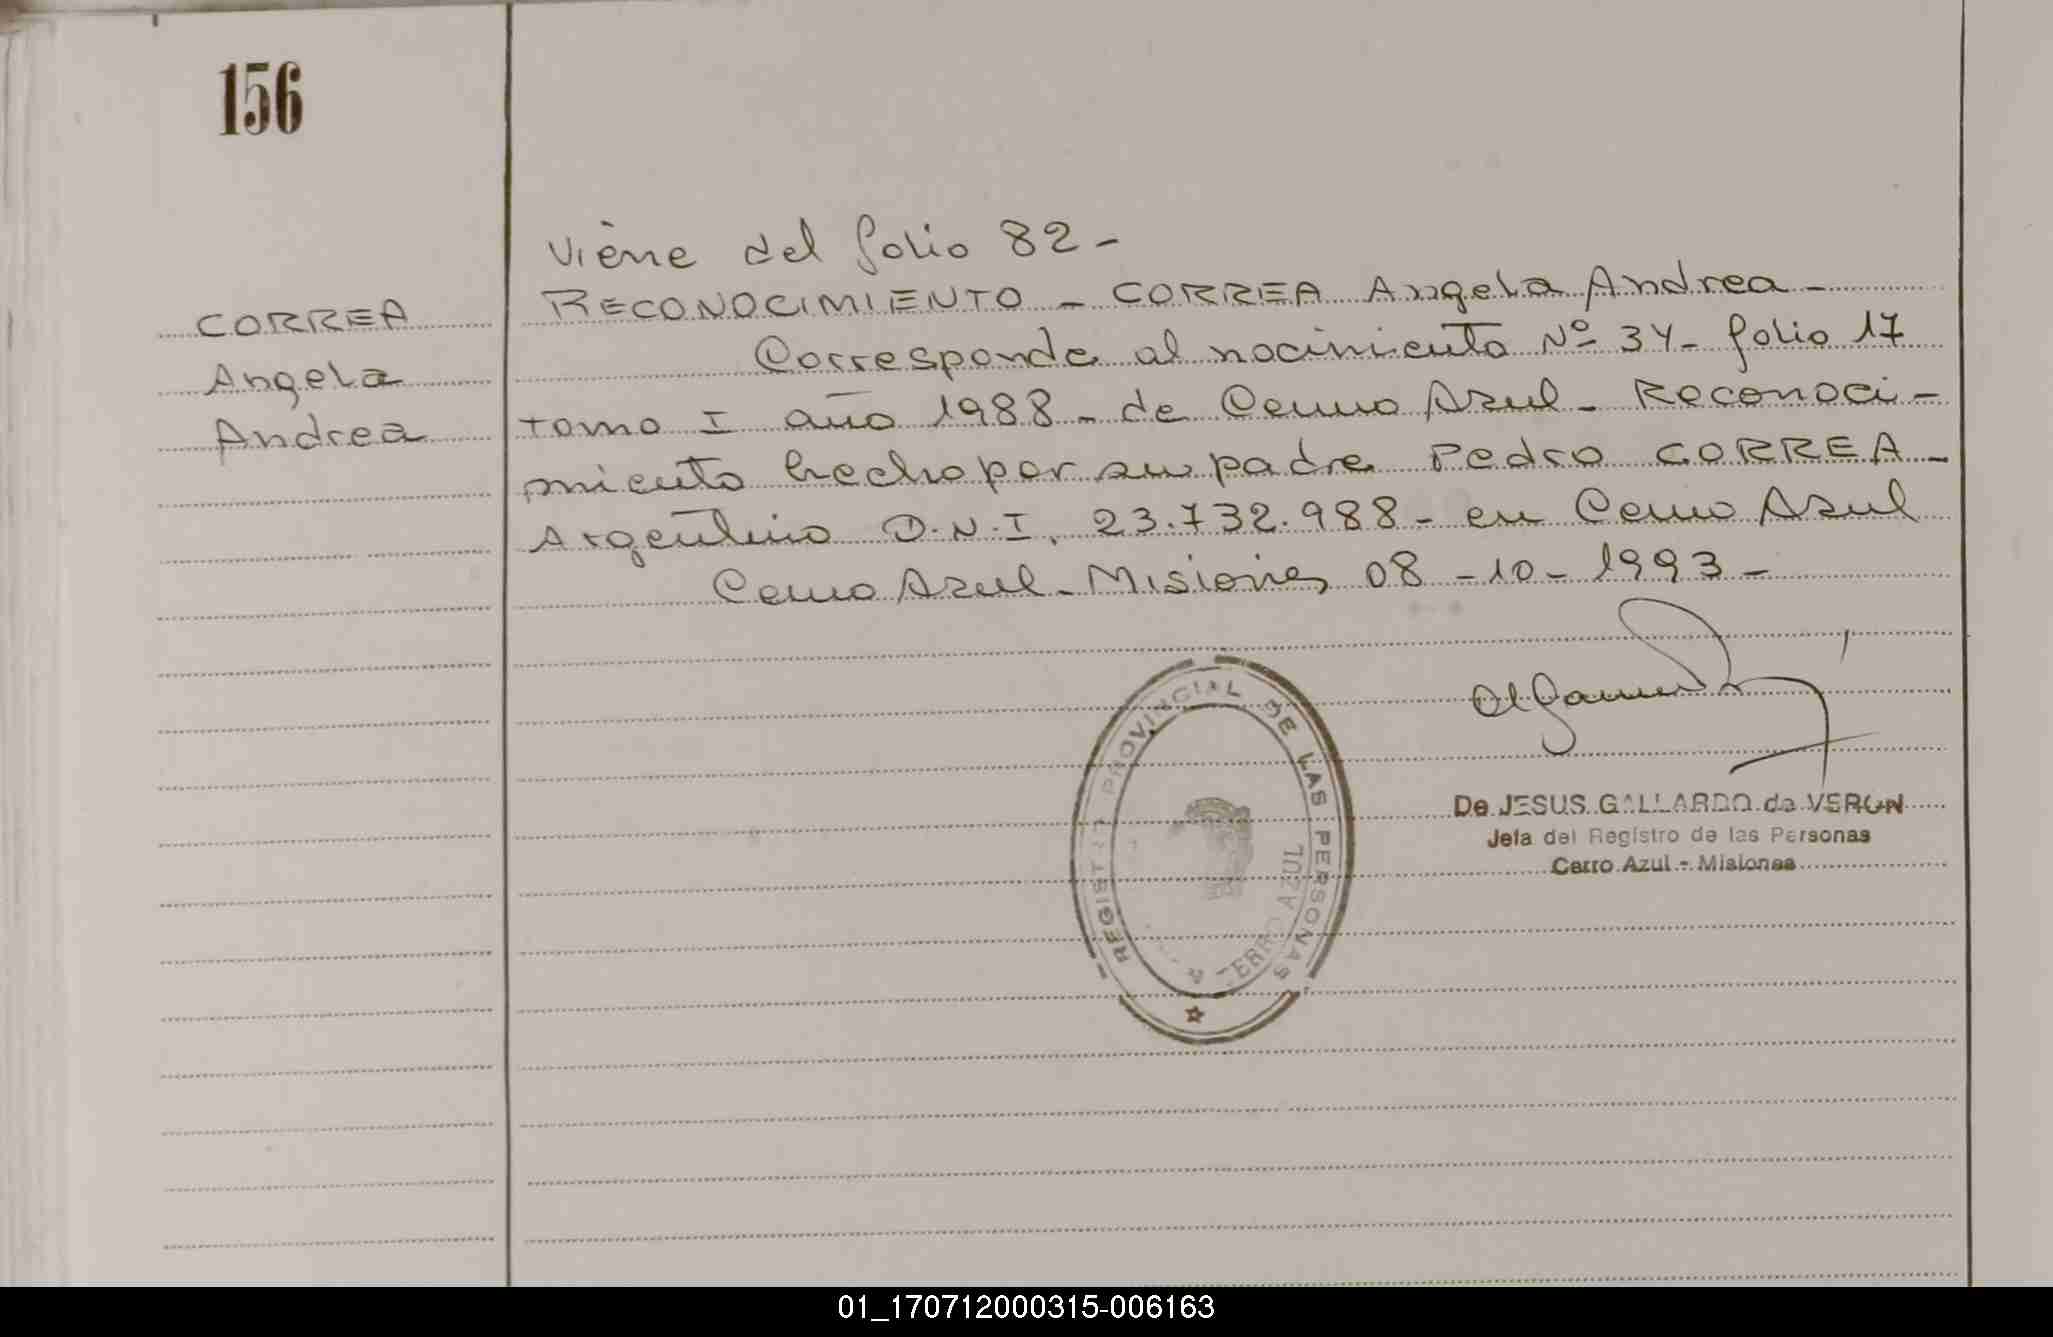 156
CORREA
Angela
Andrea
Viene del folio 82-
RECONOCIMIENTO - CORREA Angela Andrea -
Corresponde al nacimiento Nº 34- folio 17
tomo I año 1988 - de Cerro Azul - Reconoci-
miento hecho por su padre Pedro CORREA -
Argentino D.N.I. 23.732.988 - en Cerro Azul
Cerro Azul - Misiones 08 -10- 1993 -
REGISTRO PROVINCIAL DE LAS PERSONAS
CERRO AZUL
De JESUS GALLARDO de VERON
Jefa del Registro de las Personas
Cerro Azul - Misiones
01_170712000315-006163